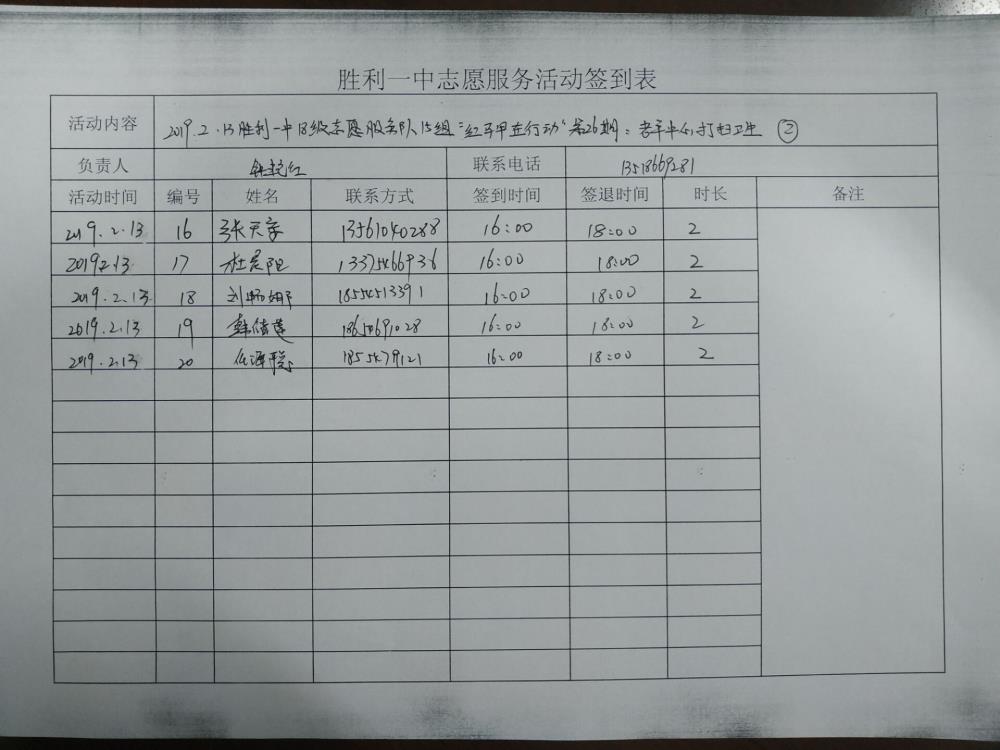 胜利一中志愿服务活动签到表
活动内容 2019.2.13胜利一中18级志愿服务队15组"红马甲在行动"第26期:老年中心打扫卫生 ②
负责人 红 联系电话 13518669281
活动时间 编号 姓名 联系方式 签到时间 签退时间 时长 备注
2019.2.13 16 张天宇 13561040288 16:00 18:00 2
2019.2.13 17 杜昊阳 13375466936 16:00 18:00 2
2019.2.13 18 刘畅娜 18554513391 16:00 18:00 2
2019.2.13 19 韩倩莲 18654691028 16:00 18:00 2
2019.2.13 20 任泽聪 16:00 18:00 2